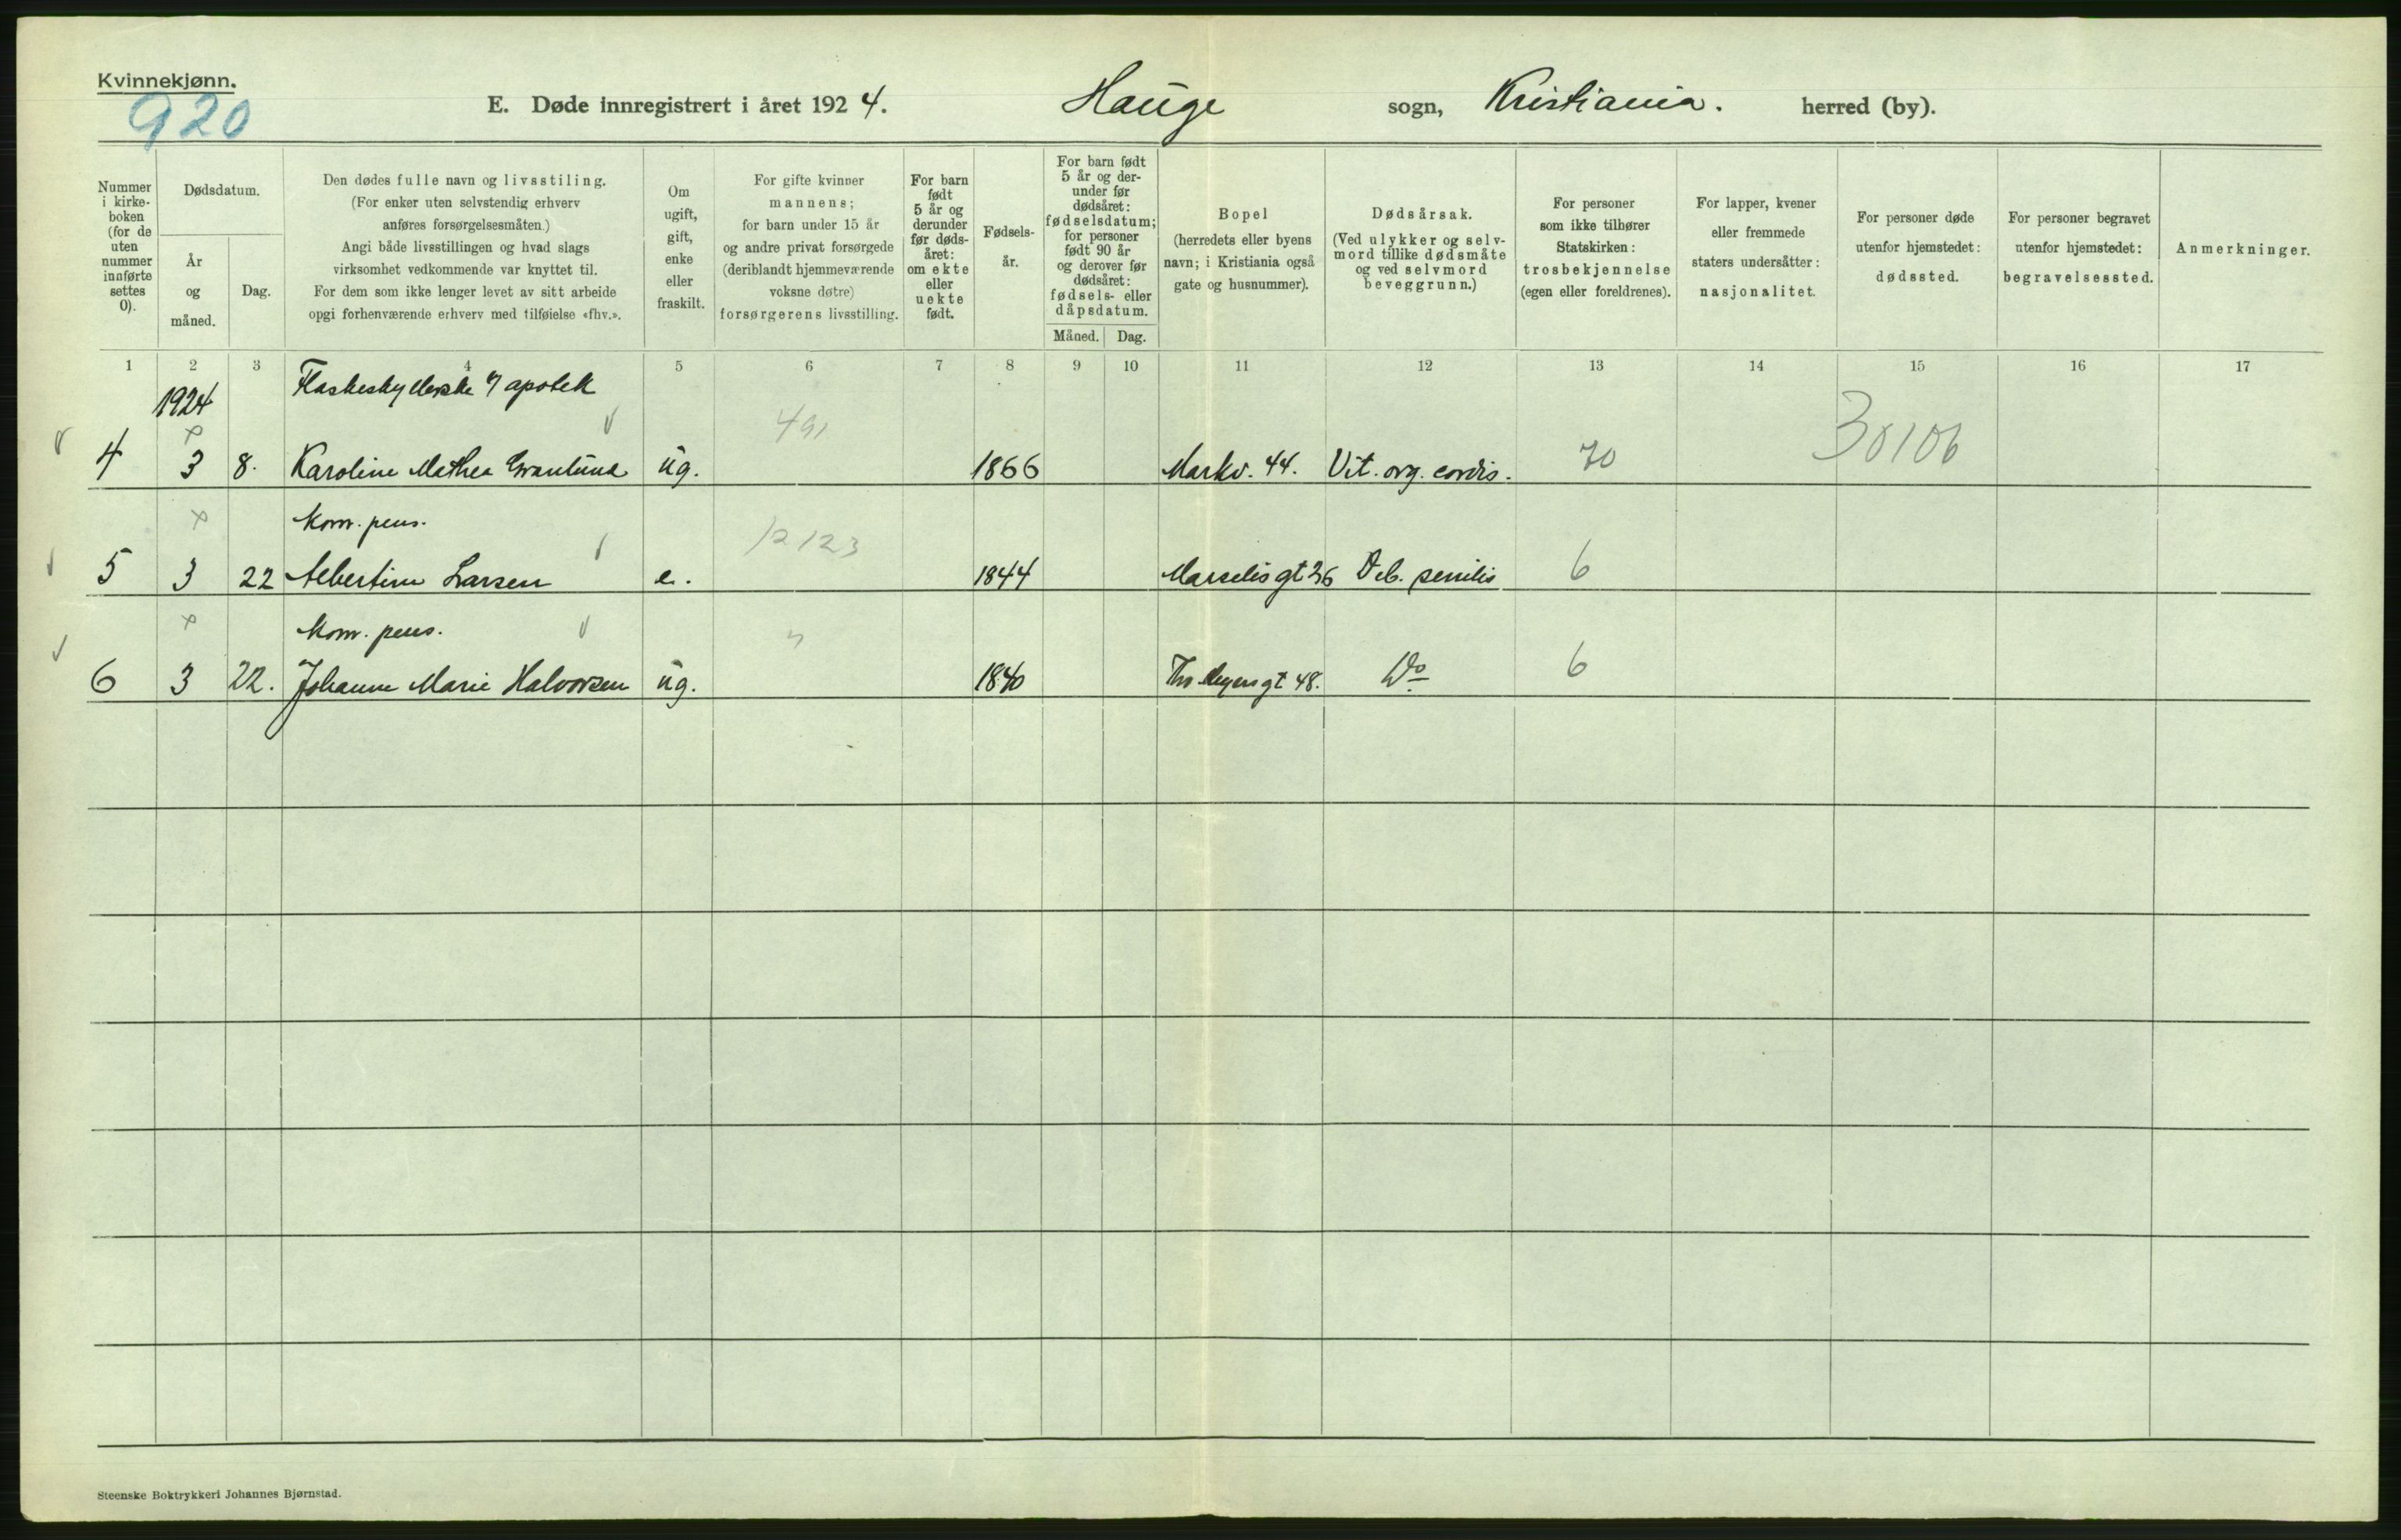 Kvinnekjønn.
920
E. Døde innregistrert i året 1924. Hauge sogn, Kristiania. herred (by).
Nummer i kirke- boken (for de uten nummer innførte settes 0).
Dødsdatum.
År og måned.
Dag.
Den dødes fulle navn og livsstiling.
(For enker uten selvstendig erhverv
anføres forsørgelsesmåten.)
Angi både livsstillingen og hvad slags
virksomhet vedkommende var knyttet til.
For dem som ikke lenger levet av sitt arbeide
opgi forhenværende erhverv med tilføielse «fhv.».
Om ugift, gift, enke eller fraskilt.
For gifte kvinner
mannens;
for barn under 15 år
og andre privat forsørgede
(deriblandt hjemmeværende
voksne døtre)
forsørgerens livsstilling.
For barn født 5 år og derunder før døds- året: om ekte eller uekte født.
Fødsels- år.
For barn født
5 år og der-
under før
dødsåret:
fødselsdatum;
for personer
født 90 år
og derover før
dødsåret:
fødsels- eller
dåpsdatum.
Måned. Dag.
Bopel
(herredets eller byens
navn; i Kristiania også
gate og husnummer).
Dødsårsak.
(Ved ulykker og selv-
mord tillike dødsmåte
og ved selvmord
beveggrunn.)
For personer
som ikke tilhører
Statskirken:
trosbekjennelse
(egen eller foreldrenes).
For lapper, kvener
eller fremmede
staters undersåtter:
nasjonalitet.
For personer døde
utenfor hjemstedet:
dødssted.
For personer begravet
utenfor hjemstedet:
begravelsessted.
Anmerkninger.
1 2 3 4 5 6 7 8 9 10 11 12 13 14 15 16 17
1924 Flaskeskyllerske apotek
491 30106
4 3 8. Karoline Mathea Granlund ug. 1866 Markv. 44. Vit. org. cordis. 70
Kom. pens.
12123
5 3 22 Albertine Larsen e. 1844 Marselis gt 26 Deb. senilis 6
Kom. pens.
6 3 22. Johanne Marie Halvorsen ug. 1840 Ths. Meyers gt 48. Do 6
Steenske Boktrykkeri Johannes Bjørnstad.